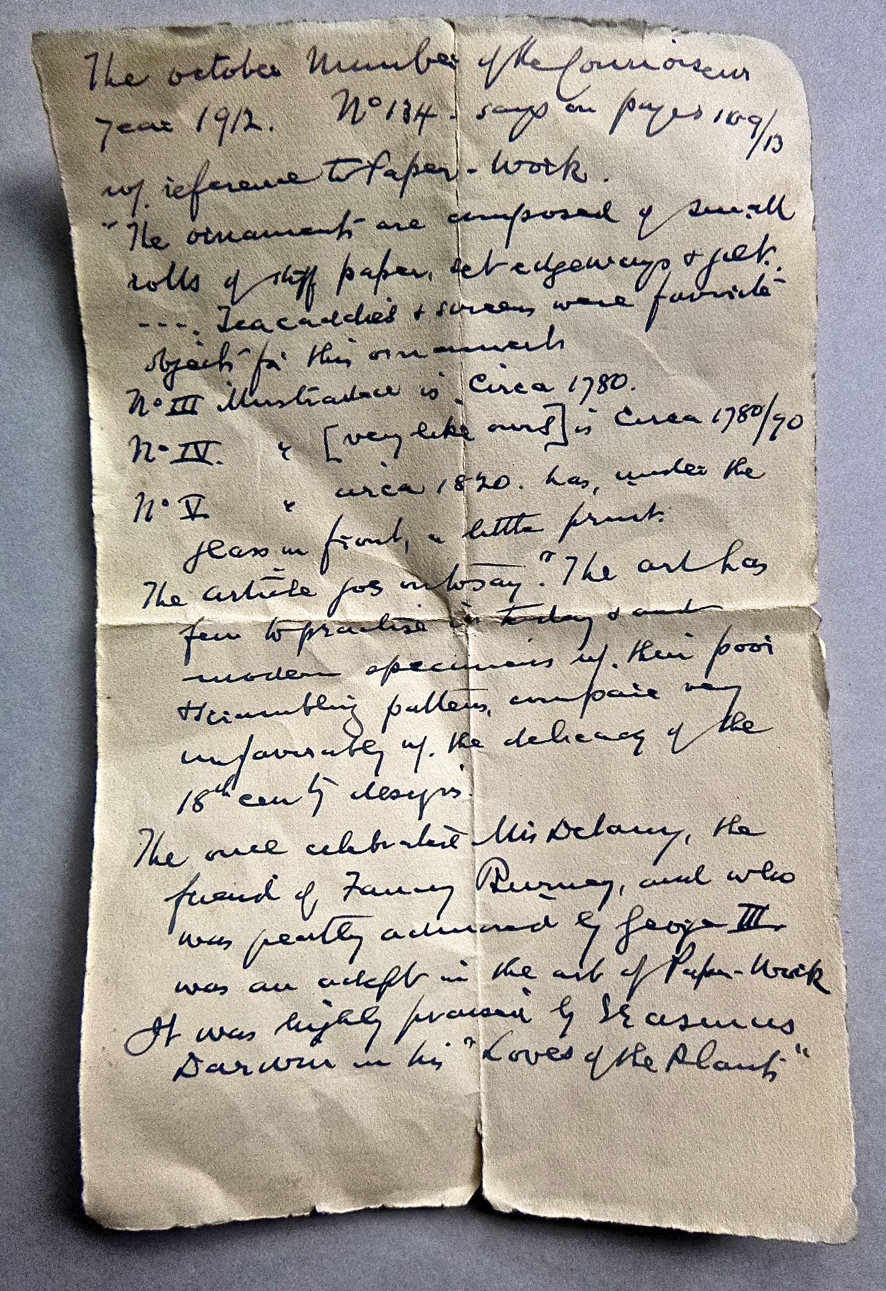 The october Number of the Connoiseur
Year 1912. No 134 - says on pages 109/13
w. reference to Paper-Work.
"The ornaments are composed of small
rolls of stiff paper, set edgeways & gilt.
----. Teacaddies & screens were favorite
objects for this ornament
No III illustrated is Circa 1780.
No IV. " [very like ours] is Circa 1780/90
No V " circa 1820. has, under the
glass in front, a little print.
The article goes on to say: "The art has
few to practise it today & and
modern specimens w. their poor
& scrambling pattern, compare very
unfavorably w. the delicacy of the
18th centy designs.
The once celebrated Mrs Delany, the
friend of Fanny Burney, and who
was greatly admired by George III.
was an adept in the art of Paper-Work
It was highly praised by Erasmus
Darwin in his "Loves of the Plants"